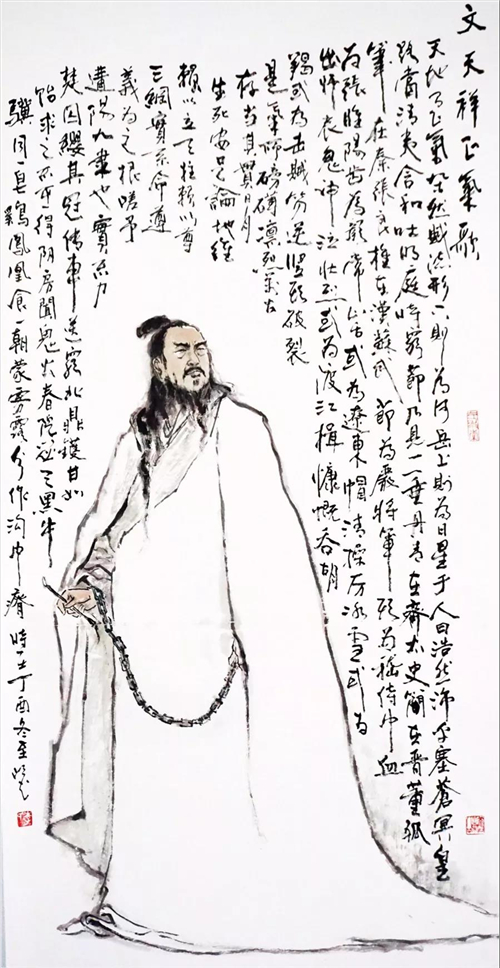 文天祥正氣歌
天地有正氣雜然賦流形下則為河岳上則為日星于人曰浩然沛乎塞蒼冥皇
路當清夷含和吐明庭時窮節乃見一一垂丹青在齊太史簡在晋董狐
筆在秦張良椎在漢蘇武節為嚴將軍頭為嵇侍中血
為張睢陽齒為顏常山舌或為遼東帽清操厉冰雪或为
出师表鬼神泣壯烈或为渡江楫慷慨吞胡
羯或为击賊笏逆竖頭破裂
是氣所磅礴凛烈萬古
存当其貫日月
生死安足論地維
賴以立天柱賴以尊
三綱實系命道
義为之根嗟予
遘陽九隶也實不力
楚囚纓其冠传車送窮北鼎鑊甘如
饴求之不可得阴房闃鬼火春院閟天黑牛
驥同一皂鷄鳳凰食一朝蒙雾露分作沟中瘠 時在丁酉冬至